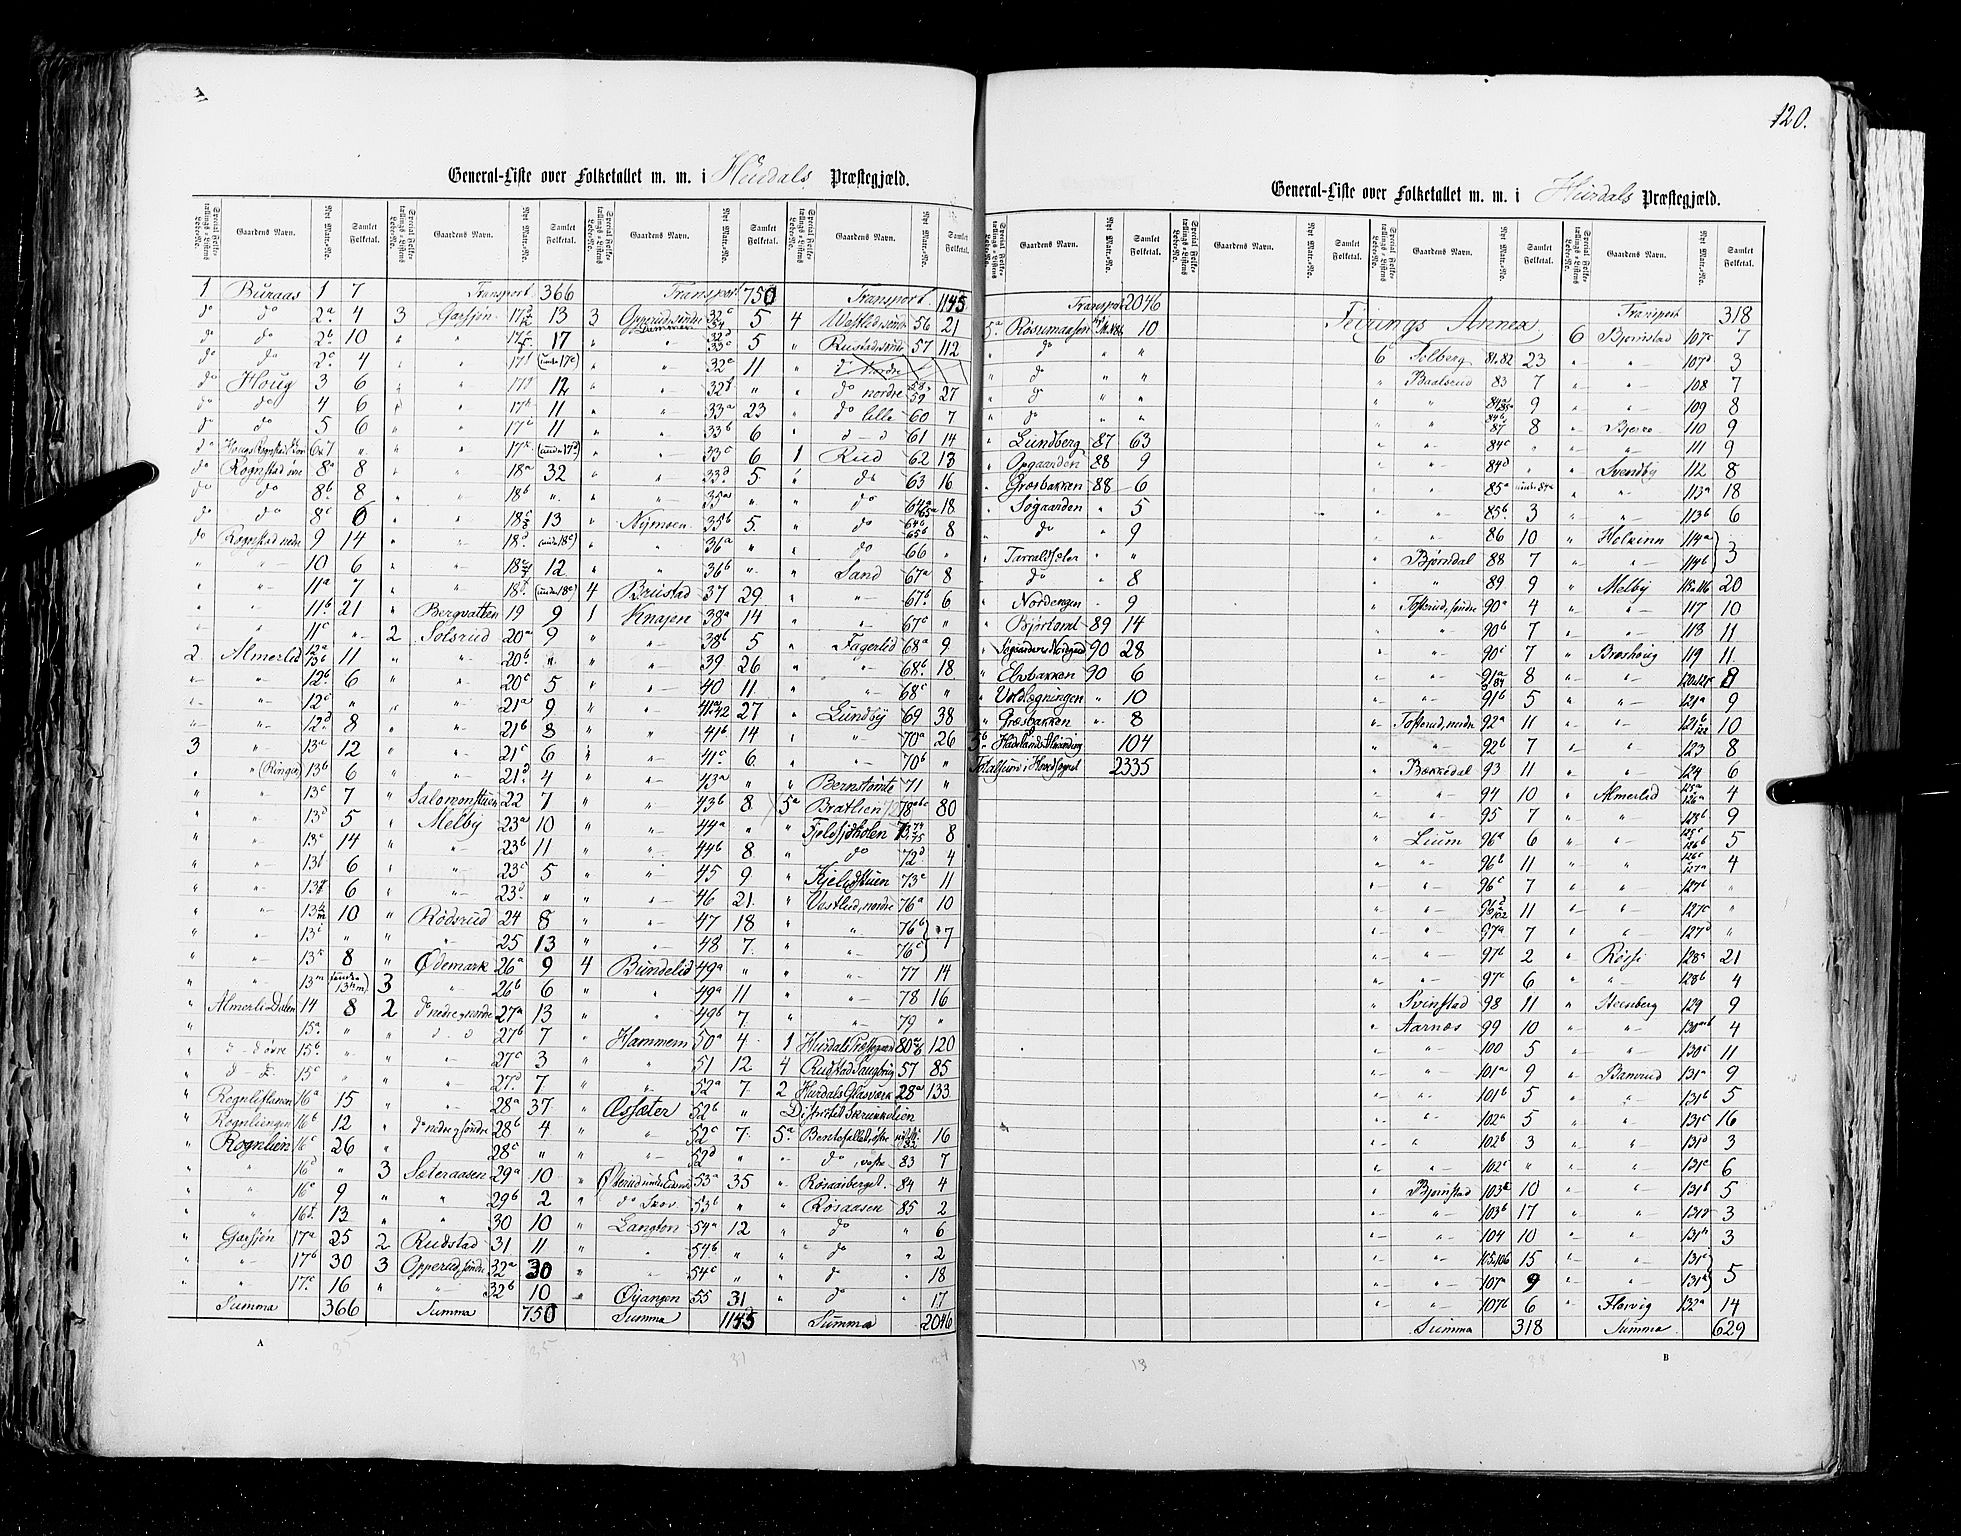 120.
General-Liste over Folketallet m. m. i Hurdals Præstegjæld.
Special Folketællings-Listens Løbe-No. Gaardens Navn. Nyt Matr.-No. Samlet Folketal.
1 Buraas 1 7
do do 2a 4
do do 2b 10
do do 2c 4
do Houg 3 6
do do 4 6
do do 5 6
do Rognstad øvre 8a 8
do do 8b 8
do do 8c 6
do Rognstad nedre 9 14
" " 10 6
" " 11a 7
" " 11b 21
" " 11c "
2 Almerlid 12a 13b 11
" " 12b 6
" " 12c "
" " 12d 8
3 " 13a 12
" " (Ringen) 13b 6
" " 13c 7
" " 13d 5
" " 13e 14
" " 13f 6
" " 13g 6
" " 10
" " 13i "
" " 13k 8
" " 13m (under 13hm)
" 14 8
" 15a "
do øvre 15b "
15c "
" Rognlistuen 16a 15
" Rognliengen 16b 12
" Rognlien 16c 26
" " 16d "
" " 16e 9
" " 16f 13
" Garsjøn 17a 25
" " 17b 30
" " 17c 16
Summa 366
Transport 366
3 Garsjøn 13
" " 17
" " 17f (under 17e)
" " 17g 12
" " 17h 11
" " 17i 11
" " 17k (under 17d)
" " 18a 32
" " 18b "
" " 13
" " 18d (under 18c)
" " 12
" " 18f (under 18e)
" Bergvatten 19 9
2 Solsrud 20a 9
" " 20b "
" " 20c 5
" " 21a 9
" " 21b 8
" " 21c 6
" " 21d 4
" Salomonstuen 22 7
" Melby 23a 10
" " 23b 11
" " 23c 5
" " 23d "
" Rødsrud 24 8
" " 25 13
" Ødemark 26a 9
3 " 26b 6
2 do nedre, nordre 27a 13
" " 27b 7
" " 27c 3
" " 27d 7
" " 28a 37
" do nedre, søndre 28b 4
" " 28c "
3 Sæteraasen 29a 10
" " 29b 2
" " 30 10
2 Rudstad 31 11
3 Opperud, søndre 32a 30
" " 32b 10
Summa 750
Transport 750
3 Opperud søndre 32c 5
" " 5
" " 32e 11
" " 32f "
" " 33a 23
" " 33b 6
" " 33c 6
" " 33d 5
" " 35a "
" Nymoen 35b 5
" " 36a "
" " 36b "
4 Brustad 37 29
1 Knajen 38a 14
" " 38b 5
" " 39 26
" " 40 11
" " 27
" " 41b 14
" " 41c 6
" " 43a "
" " 43b 8
" " 44a "
" " 44b 8
" " 45 9
" " 46 21
" " 47 18
" " 48 7
4 Bundelid 49a "
" " 49a 11
" " 49b 7
" Hammern 50a 4
" " 51 12
" " 52a 7
" Øssæter 52b "
" " 52c 7
" " 52d "
" 53a 35
" do Skov 53b "
" Langton 54a 12
" " 54b "
" " 54c "
" Øyangen 55 31
Summa 1145
Transport 1145
4 Westlid søndre 56 21
" Rustad, søndre 57 112
" do nordre
" do nordre 58, 59 27
" do lille 60 7
" do 61 14
1 Rud 62 13
" do 63 16
" do 64a 65a 18
" do 64b 65b 8
" do 66 "
" Sand 67a 8
" " 67b 6
" " 67c "
" Fagerlid 68a 9
" " 68b 18
" " 68c "
" Lundby 69 38
" " 70a 26
" " 70b "
" Bernstomte 71 "
5a Bratlien 80
" Fjeldsjøholen 8
" do 72d 4
" Kjeldstuen 73c 11
" Vestlid, nordre 76a 10
" " 76b
" " 76c } 7
" " 77 14
" " 78 16
" " 79 "
1 Hurdals Præstegaard 80 120
4 Rustad Saugbrug 57 85
2 Hurdals Glasværk 28a 133
Distrikt Skrukkelien
5a Bentefallet, østre 82 16
" do, vestre 83 7
" Røsaasberget 84 4
" Røsaasen 85 2
" do " 6
" do " 2
" do " 18
" do " 17
Summa 2046
A
General-Liste over Folketallet m. m. i Hurdals Præstegjæld.
Special Folketællings-Listens Løbe-No. Gaardens Navn. Nyt Matr.-No. Samlet Folketal.
Transport 2046
5a Røssumaasen 10
" do " "
" do " "
" do " "
" do " "
" Lundberg 87 63
" Opgaarden 88 9
" Græsbakken 88 6
" Søgaarden " 5
" do 9
" " "
" do " 8
" Nordengen 9
" Bjørtomt 89 14
" 90 28
" Elvebakken 90 6
" Voldlægningen " 10
" Græsbakken " 8
5b 104
Totalsum i Hovedsognet 2335
Feirings Annex
6c Solberg 81.82 23
" Baalsrud 83 7
" " 9
" " 8
" " 84c "
" " 84d "
" " 85a under 84a
" " 85b 3
" " 86 10
" Bjørndal 88 7
" " 89 9
" Tosterud, søndre 90a 4
" " 90b 7
" " 90c 7
" " 8
" " 91b 5
" Tosterud, nordre 92a 11
" " 92b 7
" Bækkedal 93 11
" " 94 10
" " 95 7
" Lium 96a 6
" " 96b 11
" " 96c 7
" " 11
" " 97a 7
" " 97b 2
" " 97c 6
" Svinstad 98 11
" Aarnæs 99 10
" " 100 5
" " 101a 9
" " 101b 5
" " 102a 5
" " 102b 3
" " 102c "
" Bjørnstad 103a 10
" " 103b 17
" " 104 10
" " 105,106 15
" " 107a 9
" " 107b 6
Summa 318
Transport 318
6 Bjørnstad 107c 7
" " 107d 3
" " 108 7
" " 109 8
" 110 9
" " 111 9
" Svendby 112 8
" " 113a 18
" " 113b 6
" 114a
" " 114b } 3
" Melby 115,116 20
" " 117 10
" " 118 11
" Bræshoug 119 11
" " 8
" " 121a 9
" " 121b 122 10
" " 123 8
" " 124 6
" Almerlid 125a 126a 4
" " 125b 9
" " 125c 126b 5
" " 126c 127a 4
" " 127b "
" " 127c "
" " 127d "
" 128a 21
" " 128b 4
" Steenberg 129 9
" " 130ab 4
" " 130c 11
" 131a 9
" " 131b 5
" " 131c 16
" " 131d 3
" " 131e 6
" " 5
" " 131g 3
" " 131h 3
" "
" " } 5
" 132a 14
Summa 629
B